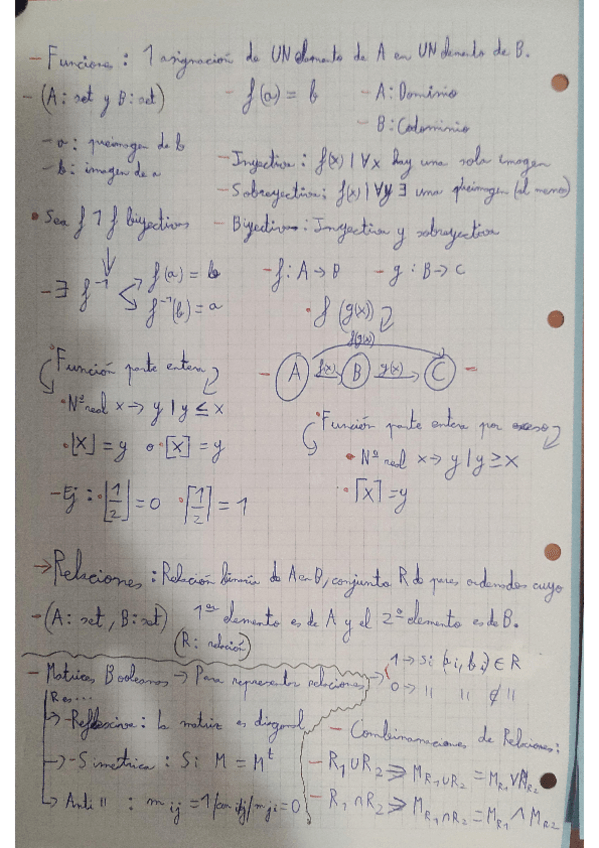 - Funciones: 1 asignación de UN elemento de A en UN elemento de B.
- (A: set y B: set) - f(a) = b - A: Dominio
- B: Codominio
- a: preimagen de b
- b: imagen de a
- Inyectiva: f(x) | ∀x hay una sola imagen
- Sobreyectiva: f(x) | ∀y ∃ una preimagen (al menos)
- Biyectiva: Inyectiva y sobreyectiva
• Sea f 1 f biyectiva
- ∃ f⁻¹ < f(a) = b
f⁻¹(b) = a
- f: A → B - g: B → C
• f(g(x))
f(g(x))
- A f(x) B g(x) C -
• Función parte entera
• Nº real x → y | y ≤ x
• ⌊x⌋ = y o • [x] = y
- Ej: • ⌊1/2⌋ = 0 • ⌈1/2⌉ = 1
• Función parte entera por exceso
• Nº real x → y | y ≥ x
• ⌈x⌉ = y
→ Relaciones: Relación binaria de A en B, conjunto R de pares ordenados cuyo
1er elemento es de A y el 2º elemento es de B.
- (A: set, B: set)
(R: relación)
- Matrices Booleanas → Para representar relaciones → 1 → Si (ai, bi) ∈ R
0 → " " ∉ "
R es...
→ - Reflexiva: La matriz es diagonal
→ - Simétrica: Si M = Mᵗ
→ Anti ": mij = 1 / mji = 0
- Combinaciones de Relaciones:
- R1 ∪ R2 ⇒ M R1∪R2 = M R1 ∨ M R2
- R1 ∩ R2 ⇒ M R1∩R2 = M R1 ∧ M R2